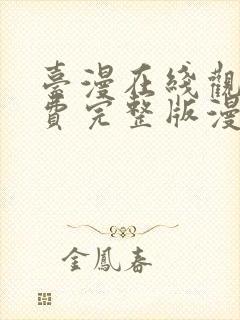 臺漫在綫觀
費完整版漫
金鳳春